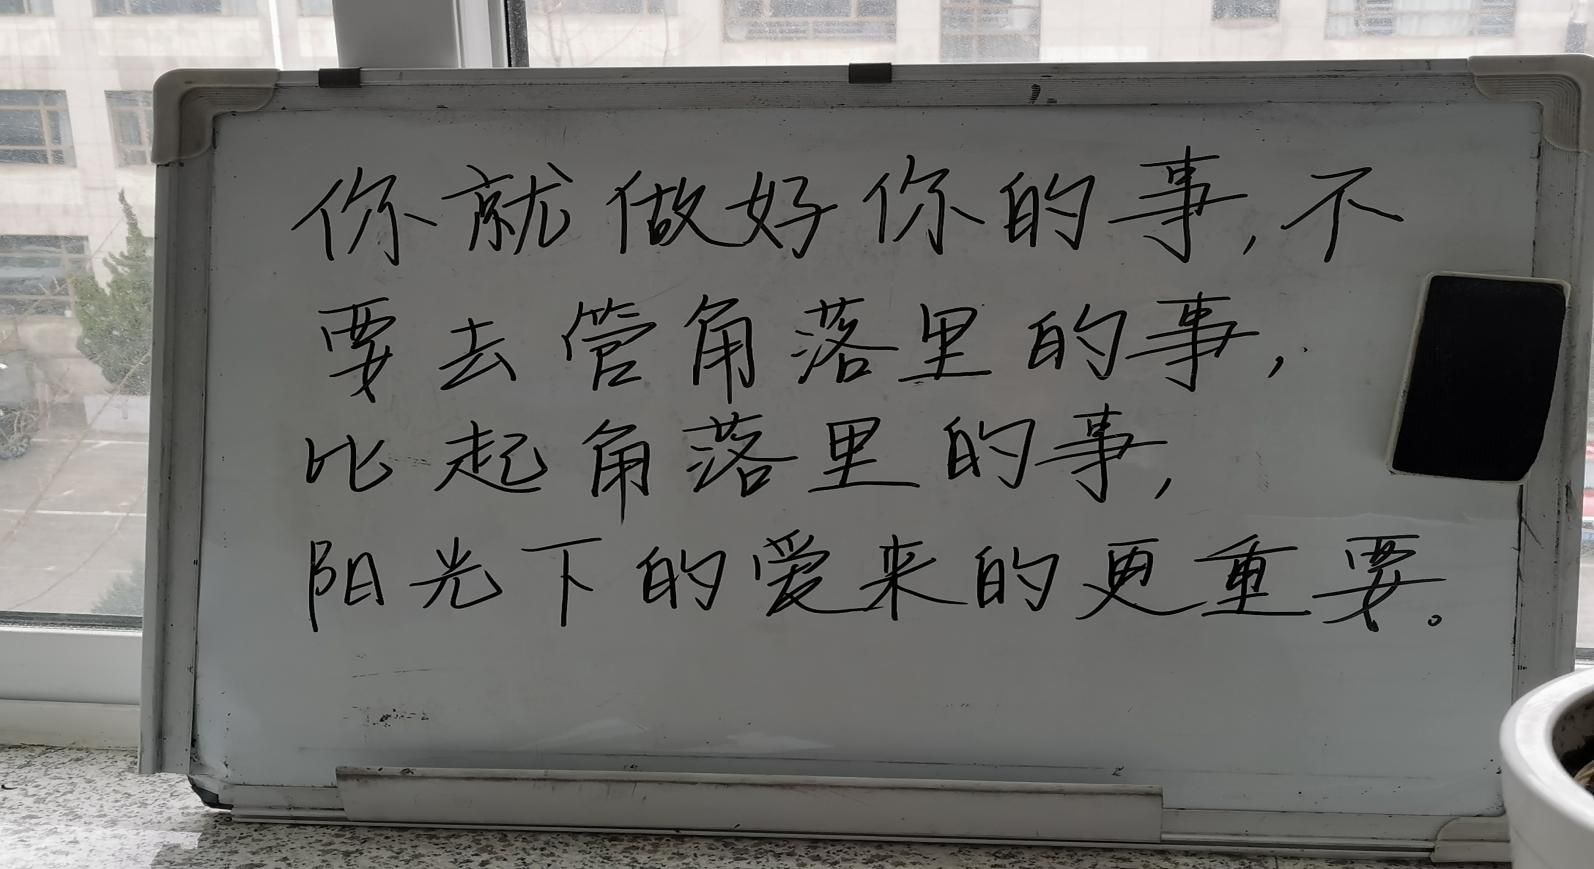 你就做好你的事,不
要去管角落里的事,
比起角落里的事,
阳光下的爱来的更重要。